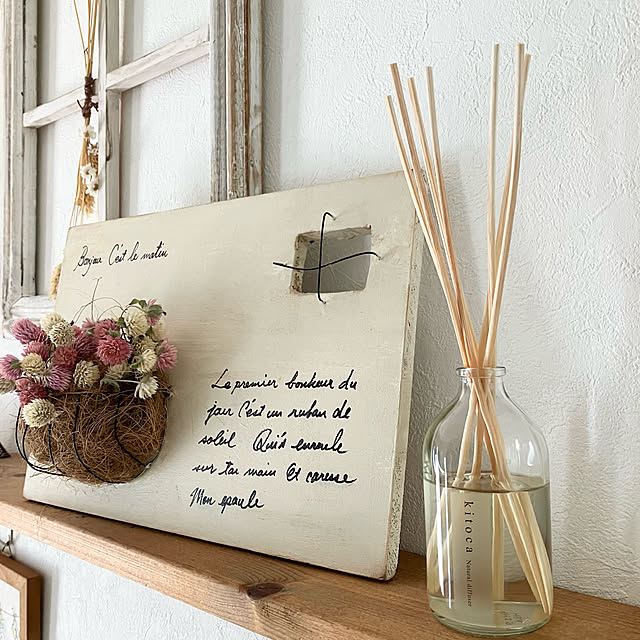 Bonjour C'est le matin
Le premier bonheur du
jour C'est un ruban de
soleil Qui's enroule
sur ta main Et caresse
Mon epaule
kitoca
Natural diffuser